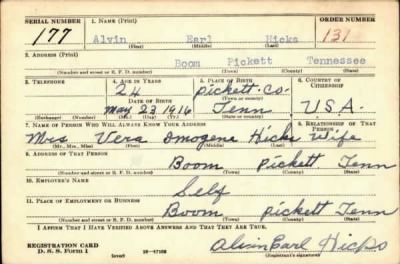 SERIAL NUMBER 1. NAME (Print) ORDER NUMBER
177 Alvin Earl Hicks 131
(First) (Middle) (Last)
2. ADDRESS (Print)
Boom Pickett Tennessee
(Number and street or R. F. D. number) (Town) (County) (State)
3. TELEPHONE 4. AGE IN YEARS 5. PLACE OF BIRTH 6. COUNTRY OF CITIZENSHIP
24 Pickett Co.
DATE OF BIRTH (Town or county)
May 23 1916 Tenn U.S.A.
(Exchange) (Number) (Mo.) (Day) (Yr.) (State or country)
7. NAME OF PERSON WHO WILL ALWAYS KNOW YOUR ADDRESS 8. RELATIONSHIP OF THAT PERSON
Mrs Vera Omogene Hicks Wife
(Mr., Mrs., Miss) (First) (Middle) (Last)
9. ADDRESS OF THAT PERSON
Boom Pickett Tenn
(Number and street or R. F. D. number) (Town) (County) (State)
10. EMPLOYER'S NAME
Self
11. PLACE OF EMPLOYMENT OR BUSINESS
Boom Pickett Tenn
(Number and street or R. F. D. number) (Town) (County) (State)
I AFFIRM THAT I HAVE VERIFIED ABOVE ANSWERS AND THAT THEY ARE TRUE.
REGISTRATION CARD Alvin Earl Hicks
D. S. S. Form 1 (over) 16—17105 (Registrant's signature)